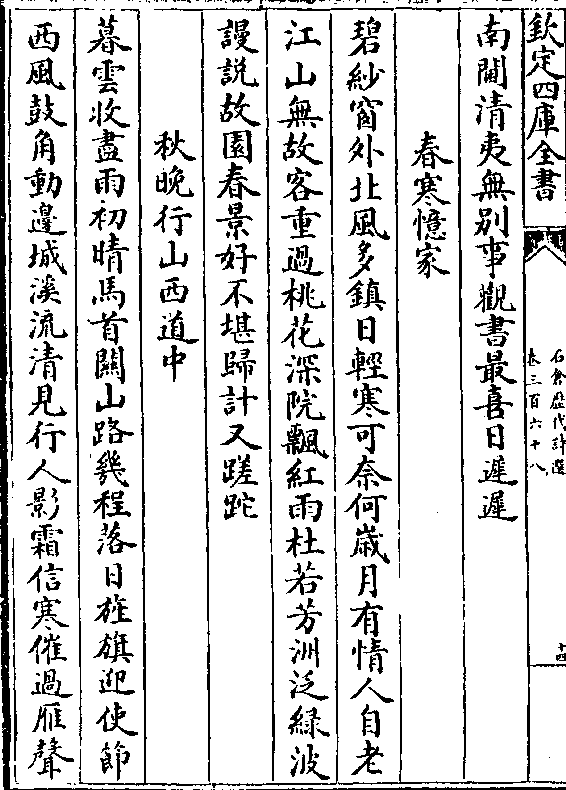 欽定四庫全書
石倉歷代詩選
卷三百六十八
十四
南閩清夷無別事觀書最喜日遲遲
春寒憶家
碧紗窗外北風多鎮日輕寒可奈何歲月有情人自老
江山無故客重過桃花深院飄紅雨杜若芳洲泛綠波
謾説故園春景好不堪歸計又蹉跎
秋晚行山西道中
暮雲收盡雨初晴馬首關山路幾程落日旌旗迎使節
西風鼓角動邊城溪流清見行人影霜信寒催過雁聲